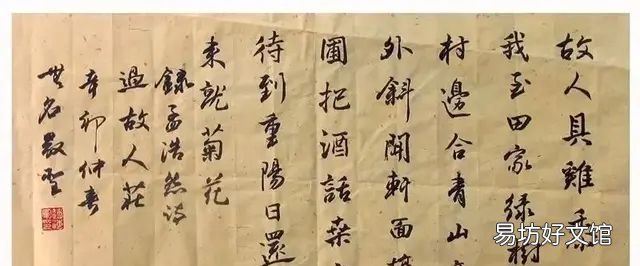 故人具雞黍
我至田家綠樹
村邊合青山
外斜開軒面場
圃把酒話桑
待到重陽日還
来就菊花
錄孟浩然詩
過故人莊
辛卯仲春
易坊好文馆